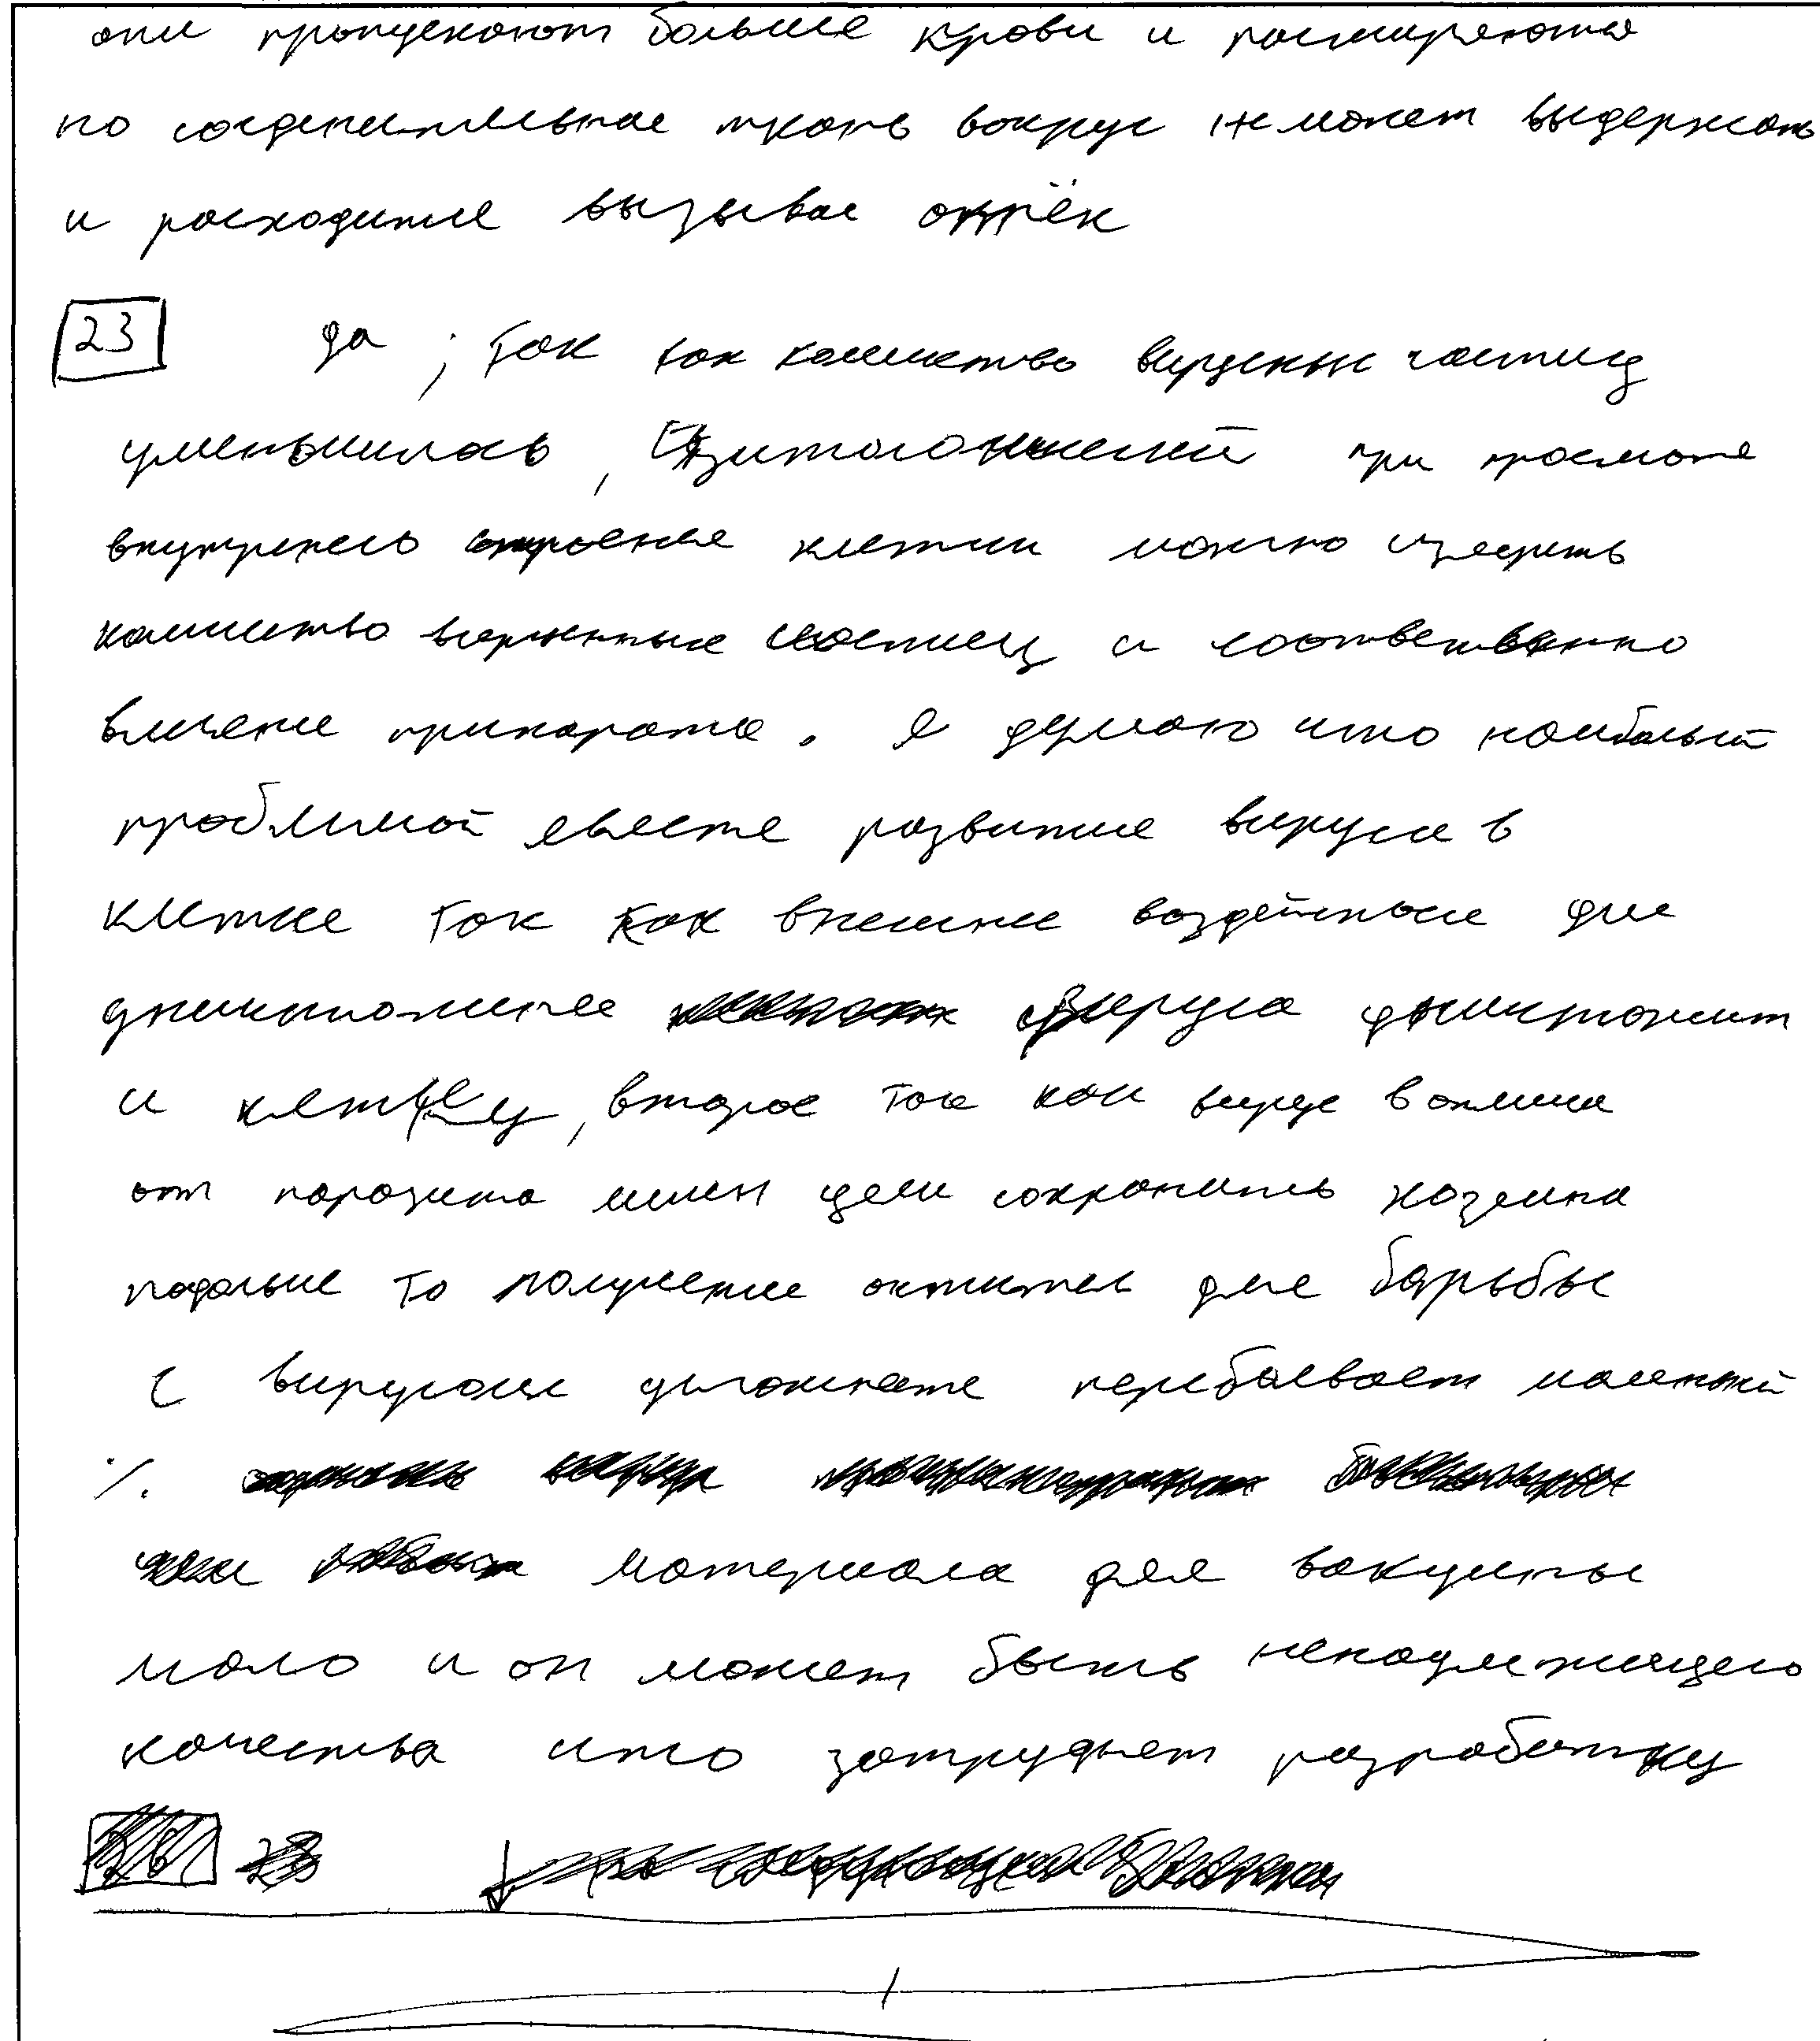 они пропускают больше крови и расширяются
но соеденительная ткань вокруг не может выдержать
и расходится вызывая отёк
23 да, так как количество вирусных частиц
уменьшилось, при просмотре
внутренего строение клетки можно увидеть
количество вирусных частиц и соответственно
влияние припарата. Я думаю что наибольшей
проблимой явлется развитие вируса в
клетке так как внешнее воздействие для
уничтожения вируса уничтожит
и клетку, второе так как вирус в отличии
от паразита цели сохранить хозяина
подольше то получение антител для борьбы
с вирусом усложняется маленький
%.
материала для вакцины
мало и он может быть ненадлежащего
качества что затрудняет разработку